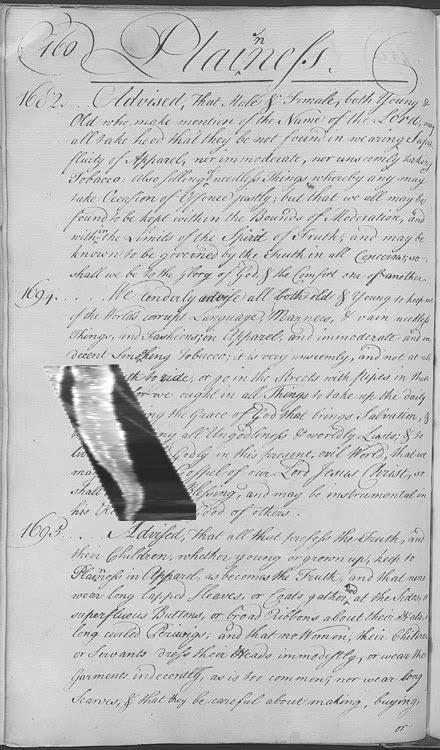 160 Plainness.
1682... Advised, that Male & Female, both Young &
Old who make mention of the Name of the Lord, may
all take heed that they be not found in wearing Super
fluity of Apparel, nor immoderate, nor unseemly taking
Tobacco: Also selling needless Things whereby any may
take Occasion of Offence justly; but that we all may be
found to be kept within the Bounds of Moderation, and
within the Limits of the Spirit of Truth; and may be
known to be governed by the Truth in all Concerns, so
shall we be to the Glory of God, & the Comfort one of another.
1694..... We tenderly advise all both old & Young to keep out
of the World's corrupt Language, Manners, & vain needless
Things, and Fashions, in Apparel; and immoderate and in
decent Smoking Tobacco; it is very unseemly, and not at all
to ride, or go in the Streets with pipes in their
for we ought in all Things to take up the daily
the Grace of God that brings Salvation, &
all Ungodliness & worldly Lusts, & to
Godly in this present, evil World, that we
Gospel of our Lord Jesus Christ, so
shall Blessing, and may be instrumental in
his Good of others.
1695... Advised, that all that profess the Truth, and
their Children, whether young or grown up, keep to
Plainness in Apparel, as becomes the Truth, and that none
wear long lapped Sleeves, or Coats gathered at the Sides, or
superfluous Buttons, or broad Ribbons about their Hats, or
long curled Periwigs; and that no Women, their Children
or Servants dress their Heads immodestly, or wear their
Garments indecently, as is too common; nor wear long
Scarves, & that they be careful about making, buying,
or